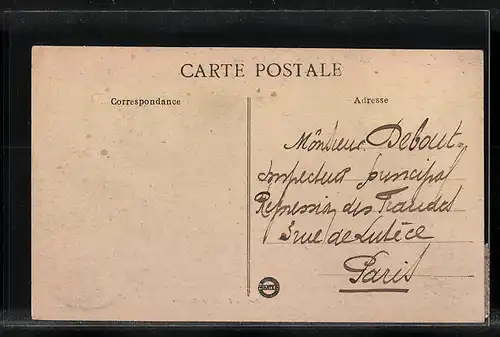 CARTE POSTALE
Correspondance
Adresse
Monsieur Debout
Inspecteur principal
Repression des Fraudes
3 rue de Lutèce
Paris